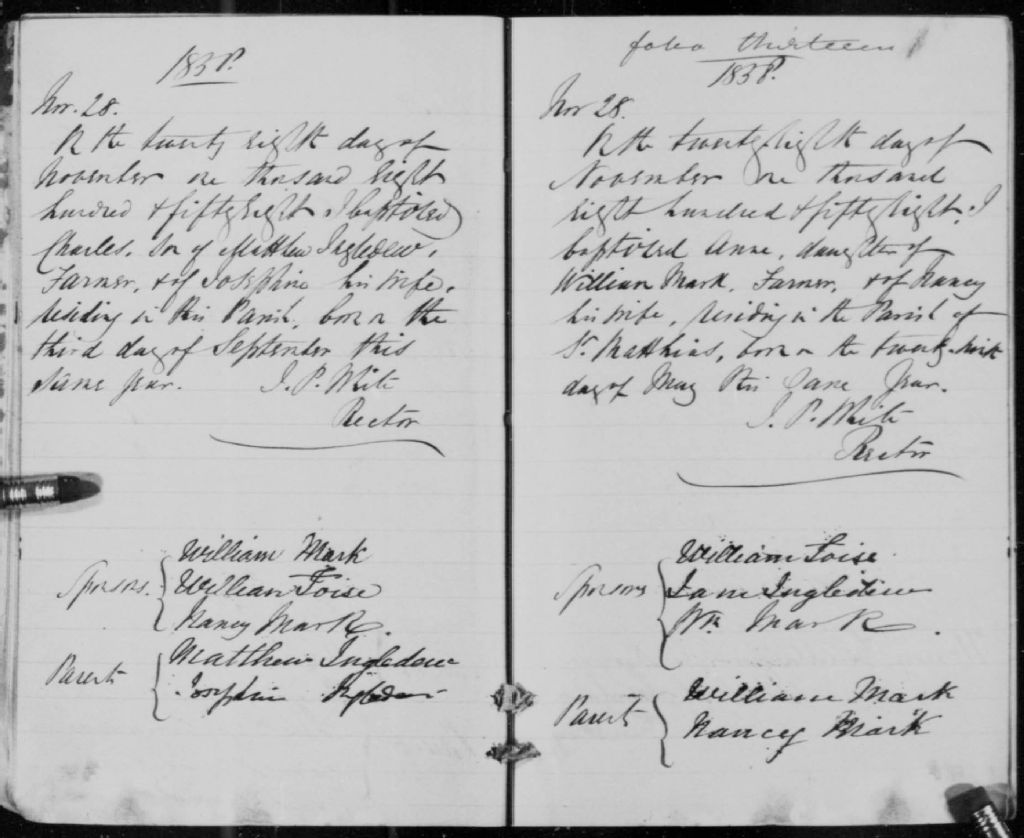 1858.
Nov. 28.
On the twenty eighth day of
November one thousand eight
hundred & fifty eight, I baptized
Charles, son of Matthew Ingledew,
Farmer, & of Josephine his wife,
residing in this Parish, born on the
third day of September this
same year. J. P. White
Rector
Sponsors. William Mark
William Foise
Nancy Mark.
Parents Matthew Ingledew
Josephine Ingledew
folio thirteen
1858.
Nov 28.
On the twenty eighth day of
November one thousand
eight hundred & fifty eight, I
baptized Anne, daughter of
William Mark, Farmer, & of Nancy
his wife, residing in the Parish of
St. Matthias, born on the twenty ninth
day of May this same year.
J. P. White
Rector
Sponsors William Foise
Jane Ingledew
Wm Mark.
Parents William Mark
Nancy Mark